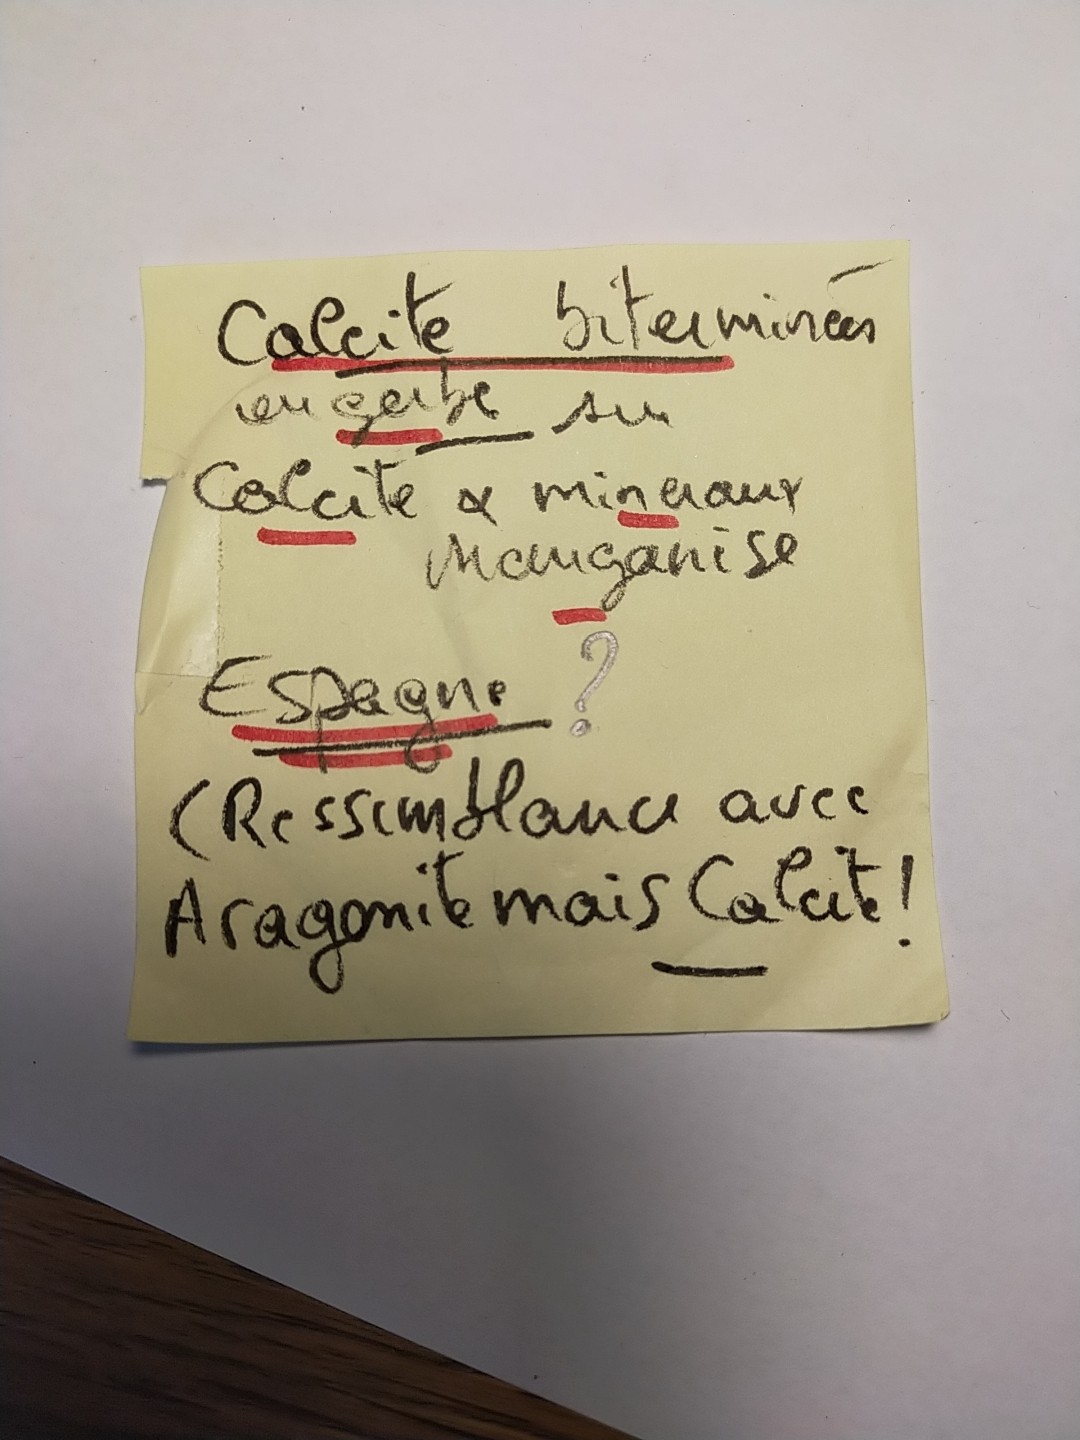 Calcite biterminées
en gerbe sur
Calcite & mineraux
Manganèse
Espagne ?
(Ressemblance avec
Aragonite mais Calcite!